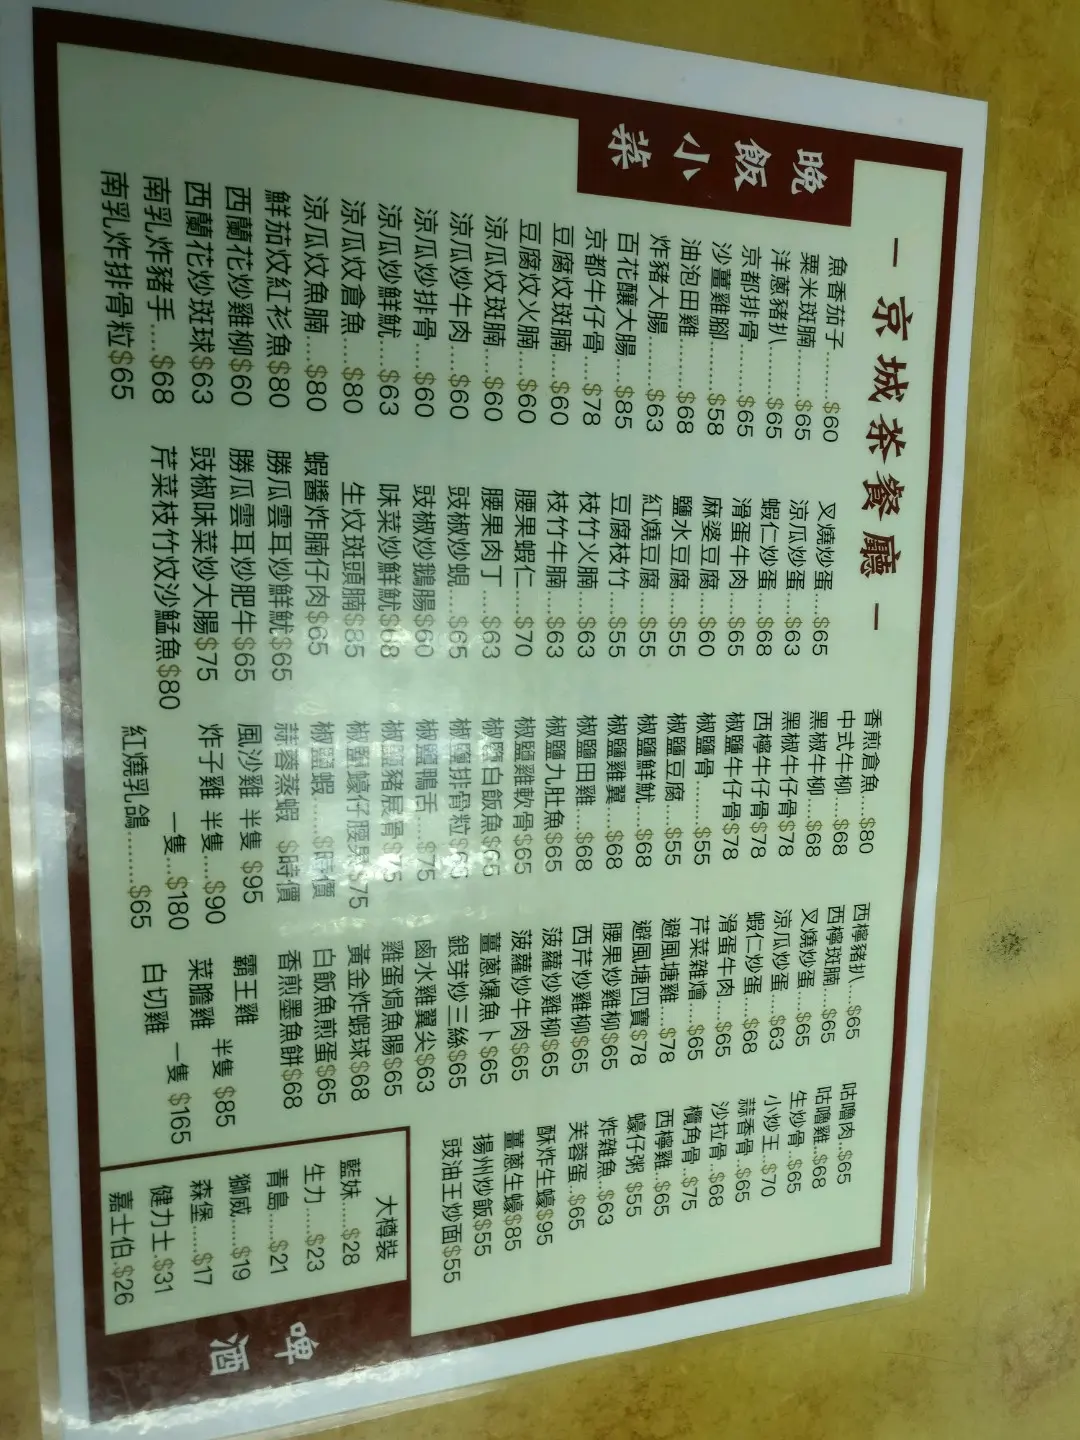 晚飯小菜
— 京城茶餐廳 —
魚香茄子........$60
粟米斑腩......$65
洋蔥豬扒......$65
京都排骨......$65
沙薑雞腳......$58
油泡田雞......$68
炸豬大腸......$63
百花釀大腸...$85
京都牛仔骨...$78
豆腐炆斑腩...$60
豆腐炆火腩...$60
涼瓜炆斑腩...$60
涼瓜炒牛肉...$60
涼瓜炒排骨...$60
涼瓜炒鮮魷...$63
涼瓜炆倉魚...$80
涼瓜炆魚腩...$80
鮮茄炆紅衫魚$80
西蘭花炒雞柳$60
西蘭花炒斑球$63
南乳炸豬手...$68
南乳炸排骨粒$65
叉燒炒蛋...$65
涼瓜炒蛋...$63
蝦仁炒蛋...$68
滑蛋牛肉...$65
麻婆豆腐...$60
鹽水豆腐...$55
紅燒豆腐...$55
豆腐枝竹...$55
枝竹火腩...$63
枝竹牛腩...$63
腰果蝦仁...$70
腰果肉丁...$63
豉椒炒蜆...$65
豉椒炒鵝腸$60
味菜炒鮮魷$68
生炆斑頭腩$85
蝦醬炸腩仔肉$65
勝瓜雲耳炒鮮魷$65
勝瓜雲耳炒肥牛$65
豉椒味菜炒大腸$75
芹菜枝竹炆沙鯭魚$80
香煎倉魚...$80
中式牛柳...$68
黑椒牛柳...$68
黑椒牛仔骨$78
西檸牛仔骨$78
椒鹽牛仔骨$78
椒鹽骨.........$55
椒鹽豆腐...$55
椒鹽鮮魷...$68
椒鹽雞翼...$68
椒鹽田雞...$68
椒鹽九肚魚$65
椒鹽雞軟骨$65
椒鹽白飯魚$65
椒鹽排骨粒$60
椒鹽鴨舌...$75
椒鹽豬展骨$75
椒鹽蠔仔腰
椒鹽蝦...$時價
蒜蓉蒸蝦 $時價
風沙雞 半隻 $95
炸子雞 半隻...$90
一隻...$180
紅燒乳鴿.........$65
西檸豬扒...$65
西檸斑腩...$65
叉燒炒蛋...$65
涼瓜炒蛋...$63
蝦仁炒蛋...$68
滑蛋牛肉...$65
芹菜雜燴...$65
避風塘雞...$78
避風塘四寶$78
腰果炒雞柳$65
西芹炒雞柳$65
菠蘿炒雞柳$65
菠蘿炒牛肉$65
薑蔥爆魚卜$65
銀芽炒三絲$65
鹵水雞翼尖$63
雞蛋焗魚腸$65
黃金炸蝦球$68
白飯魚煎蛋$65
香煎墨魚餅$68
霸王雞
菜膽雞 半隻 $85
白切雞 一隻 $165
咕嚕肉..$65
咕嚕雞..$68
生炒骨...$65
小炒王...$70
蒜香骨...$65
沙拉骨...$68
欖角骨...$75
西檸雞...$65
蠔仔粥 $55
炸雜魚...$63
芙蓉蛋...$65
酥炸生蠔$95
薑蔥生蠔$85
揚州炒飯$55
豉油王炒面$55
大樽裝
藍妹......$28
生力......$23
青島......$21
獅威......$19
森堡......$17
健力士.$31
嘉士伯.$26
啤酒